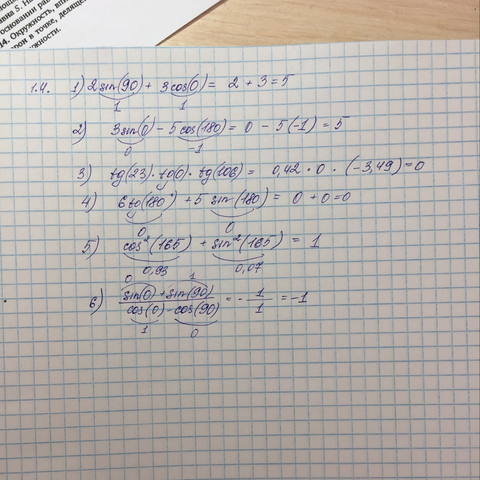 вна 5. На
основании рав
14. Окружность, впи
рон в точке, делящей
1.4. 1) 2 sin(90) + 3 cos(0) = 2 + 3 = 5
1 1
2) 3 sin(0) - 5 cos(180) = 0 - 5(-1) = 5
0 -1
3) tg(23) · tg(0) · tg(106) = 0,42 · 0 · (-3,49) = 0
4) 6 tg(180°) + 5 sin(180) = 0 + 0 = 0
0 0
5) cos²(165) + sin²(165) = 1
0,93 0,07
0 1
6) sin(0) + sin(90) / cos(0) - cos(90) = - 1/1 = -1
1 0